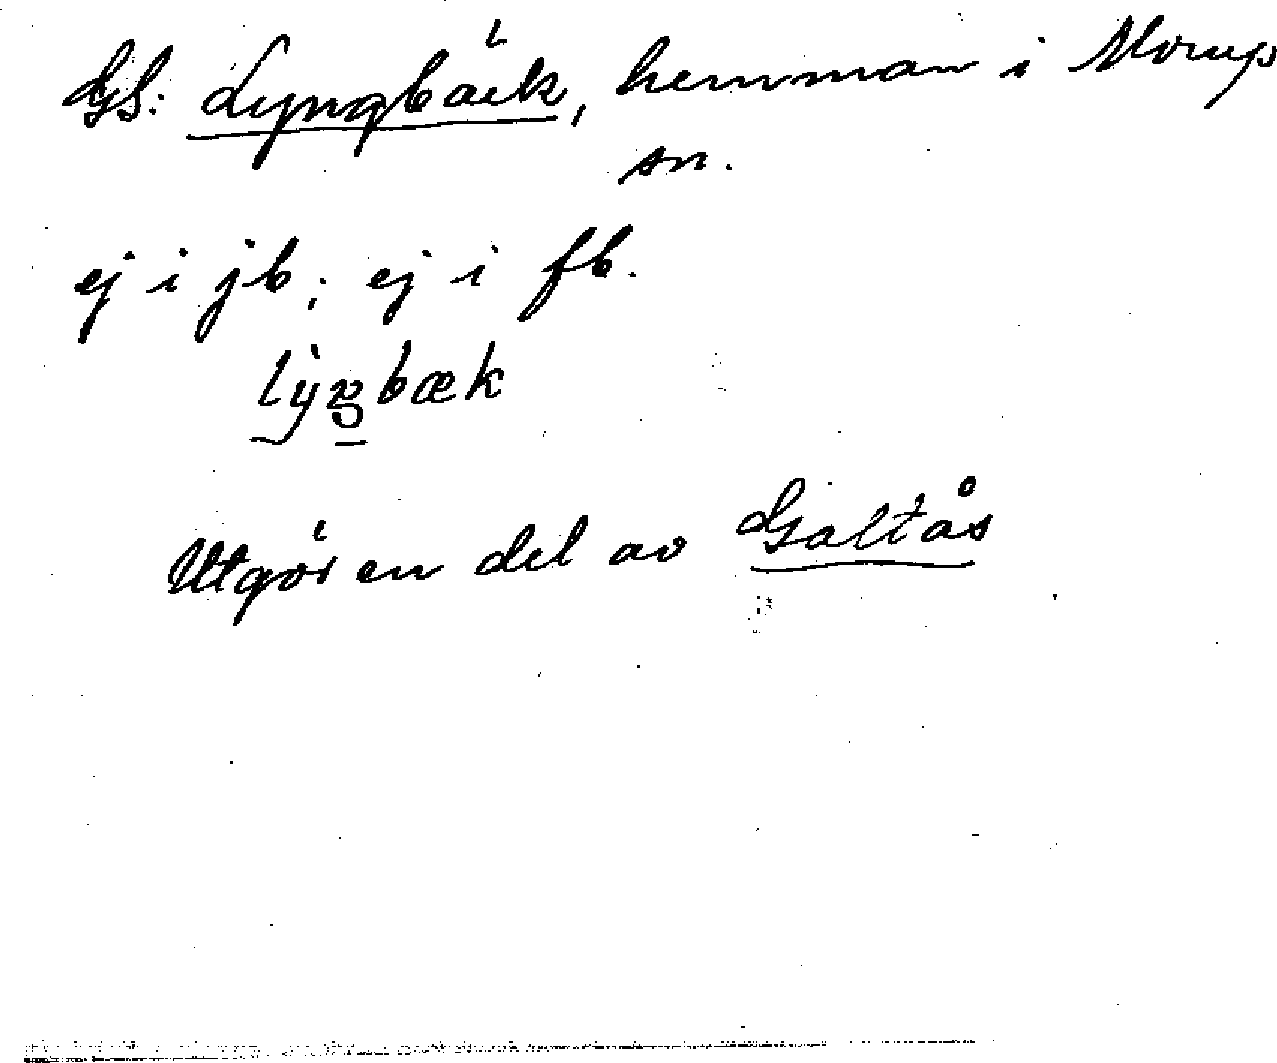 GS: Lyngbäck, hemman i Morups
sn.
ej i jb; ej i fb.
Utgör en del av Galtås